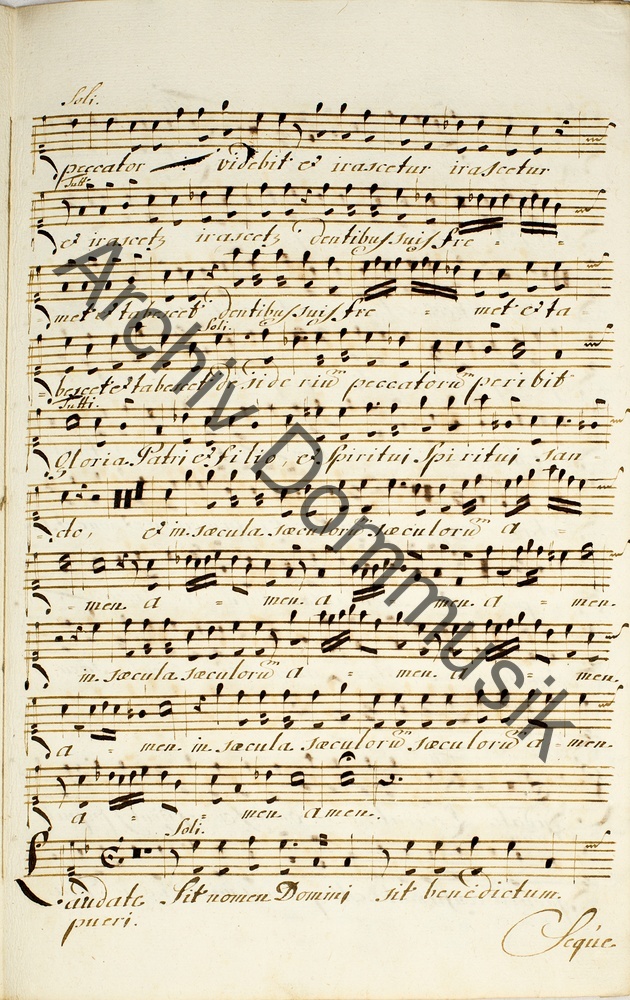 Soli.
peccator videbit et irascetur irascetur
Tutti
et irascetr irascetr dentibus suis fre - -
met et tabescet dentibus suis fre - met et ta
Soli.
bescet et tabescet desideriũm peccatorũm peribit
Tutti.
Gloria Patri et filio et Spiritui Spiritui san
cto, et in sæcula sæculorũm sæculorũm a -
- men. a - men. a - men. a - men.
in sæcula sæculorũm a - men. a - men.
a - men. in sæcula sæculorũm sæculorũm a - men.
a - - men amen.
Soli.
Laudate Sit nomen Domini sit benedictum.
pueri.
Seque
Archiv Dommusik